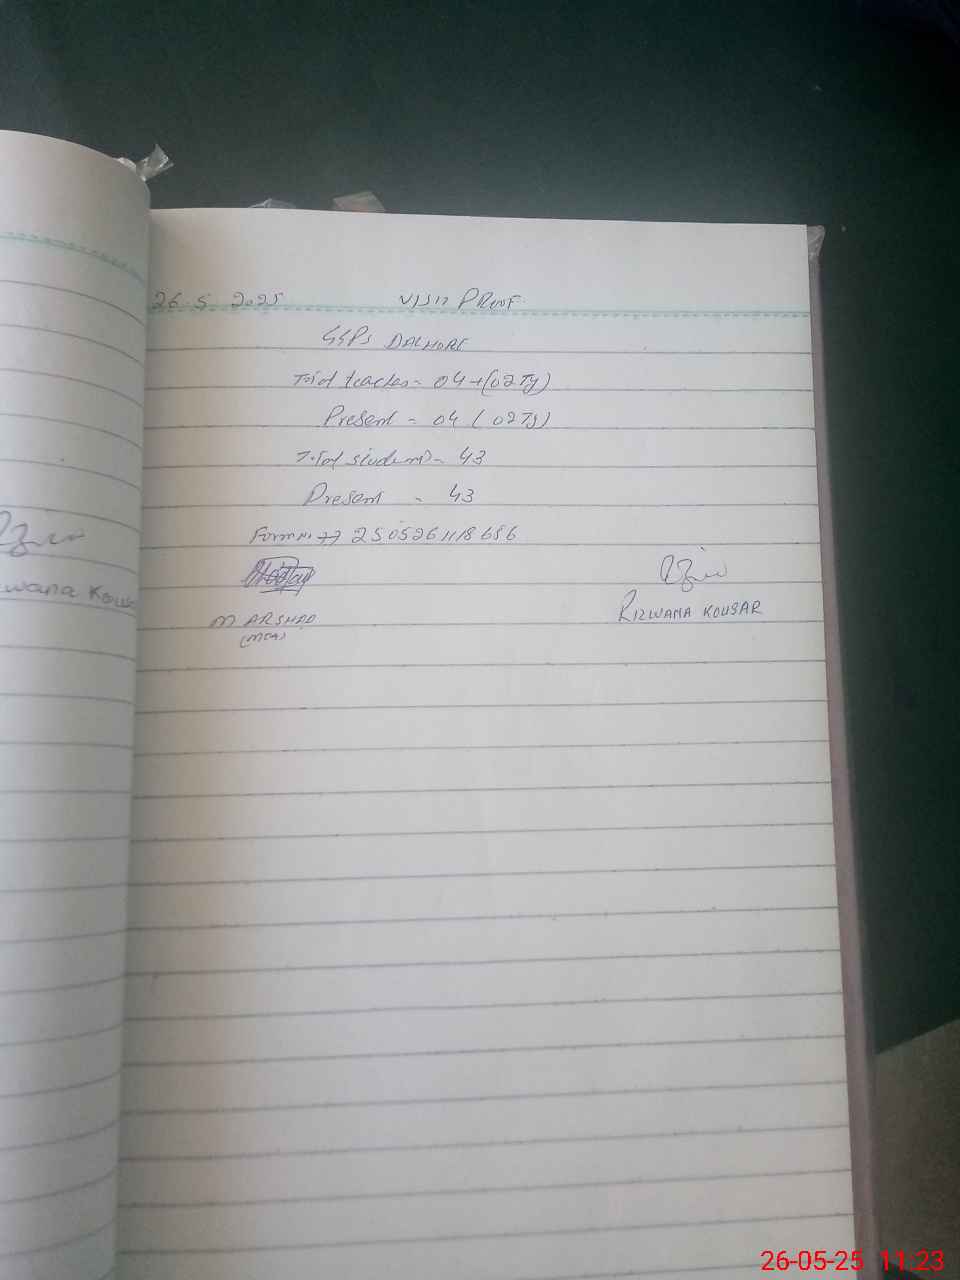 26.5 2025 VISIT PROOF
GGPS DALHORE
Total teacher - 04+(02Tg)
Present - 04 (02Tg)
Total students - 43
Present - 43
Form No → 250526111868 6
M ARSHAD
(MEA)
RIZWANA KOUSAR
wana Kousar
26-05-25 11:23